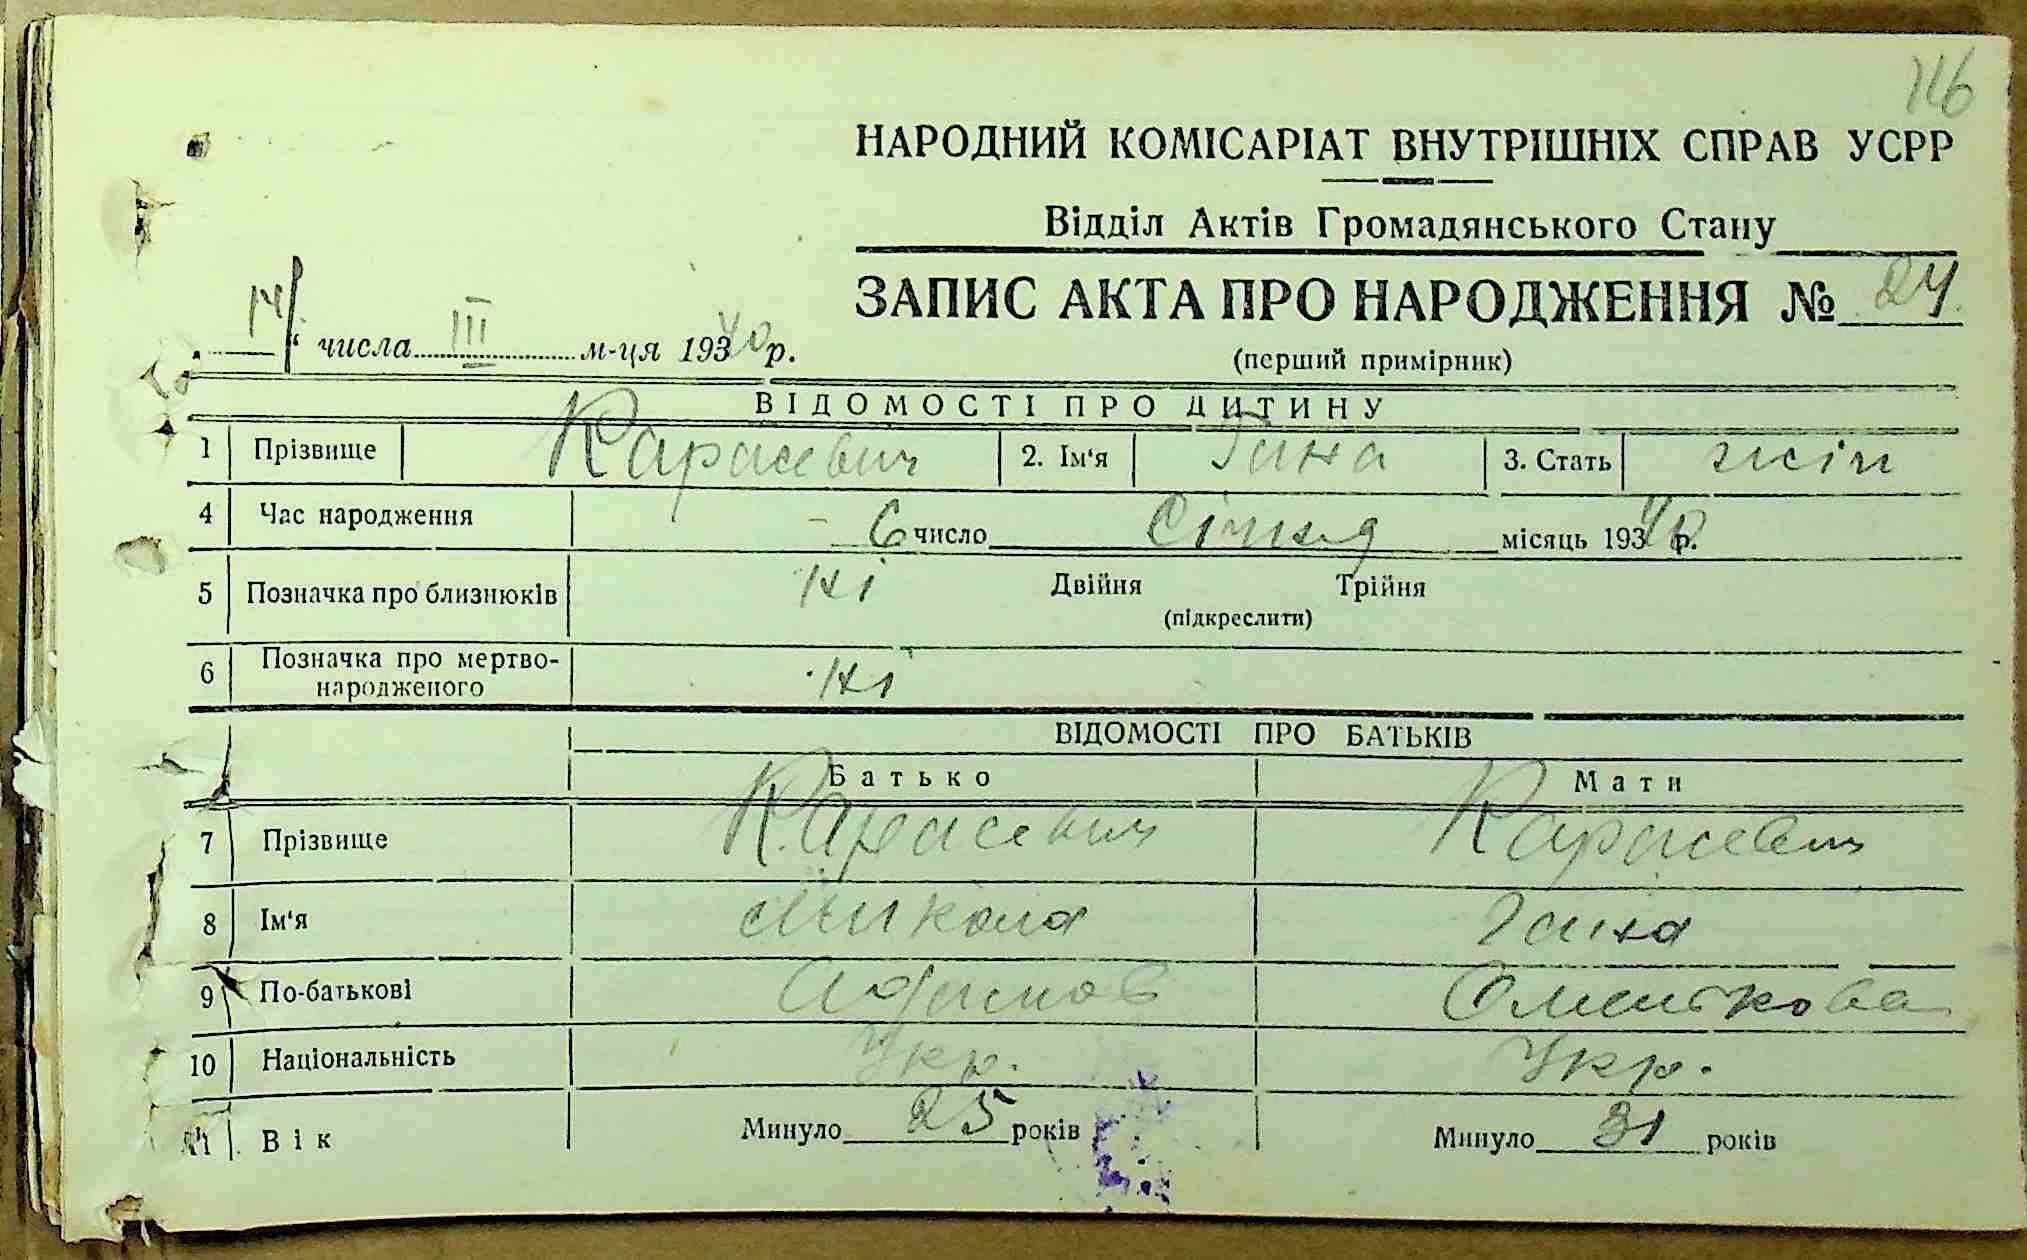 116
НАРОДНИЙ КОМІСАРІАТ ВНУТРІШНІХ СПРАВ УСРР
Відділ Актів Громадянського Стану
ЗАПИС АКТА ПРО НАРОДЖЕННЯ № 24
14 числа III м-ця 1940 р.
(перший примірник)
ВІДОМОСТІ ПРО ДИТИНУ
1 Прізвище Карасевич 2. Ім'я Гана 3. Стать жін
4 Час народження 6 число Січня місяць 1940 р.
5 Позначка про близнюків ні Двійня Трійня
(підкреслити)
6 Позначка про мертво-
народженого ні
ВІДОМОСТІ ПРО БАТЬКІВ
Батько Мати
7 Прізвище Карасевич Карасевич
8 Ім'я Микола Гана
9 По-батькові
10 Національність Укр. Укр.
11 Вік Минуло 25 років Минуло 31 років